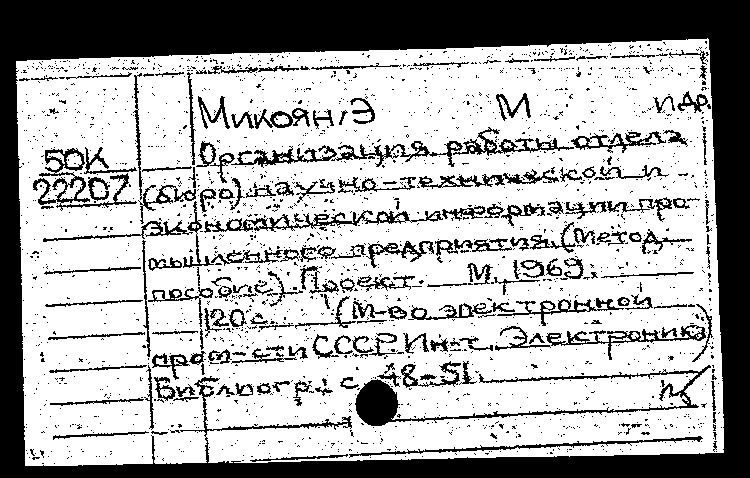 Микоян, Э М и др.
50К
22207
Организация работы отдела
(бюро) научно-технической и
экономической информации про-
мышленного предприятия. (Метод.
пособие). Проект. М., 1969.
120 с. (М-во электронной
пром-сти СССР. Ин-т „Электроника")
Библиогр.: с. 48-51.